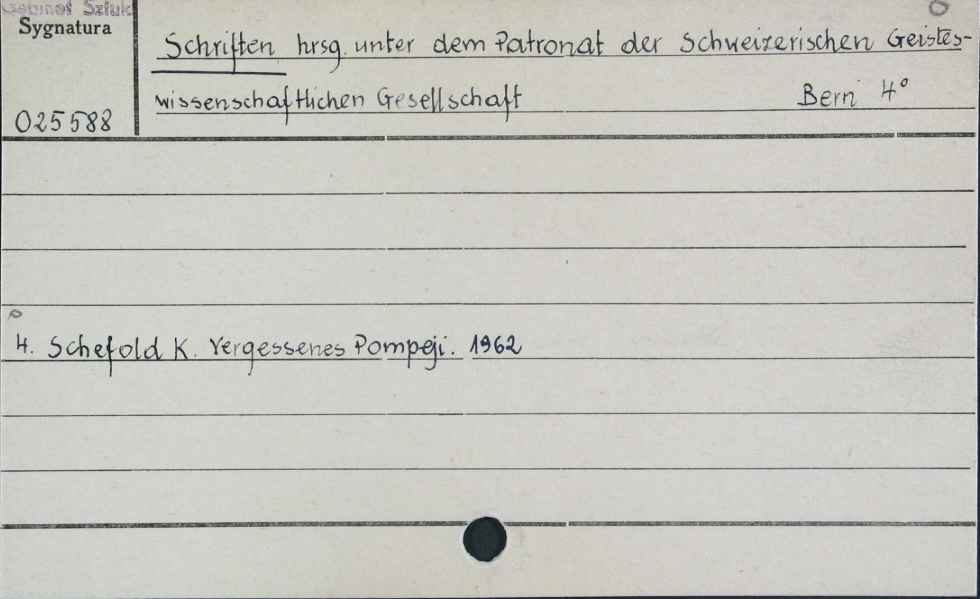 Gabinet Sztuk
Sygnatura
Schriften hrsg. unter dem Patronat der Schweizerischen Geistes-
wissenschaftlichen Gesellschaft Bern 4°
025588
4. Schefold K. Vergessenes Pompeji. 1962